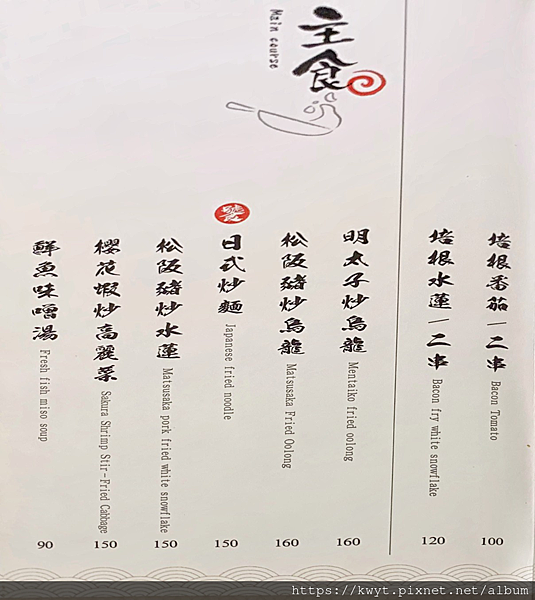 培根番茄/二串 Bacon Tomato 100
培根水蓮/二串 Bacon fry white snowflake 120
主食
Main course
明太子炒烏龍 Mentaiko fried oolong 160
松阪豬炒烏龍 Matsusaka Fried Oolong 160
日式炒麵 Japanese fried noodle 150
松阪豬炒水蓮 Matsusaka pork fried white snowflake 150
櫻花蝦炒高麗菜 Sakura Shrimp Stir-Fried Cabbage 150
鮮魚味噌湯 Fresh fish miso soup 90
https://kwyt.pixnet.net/album